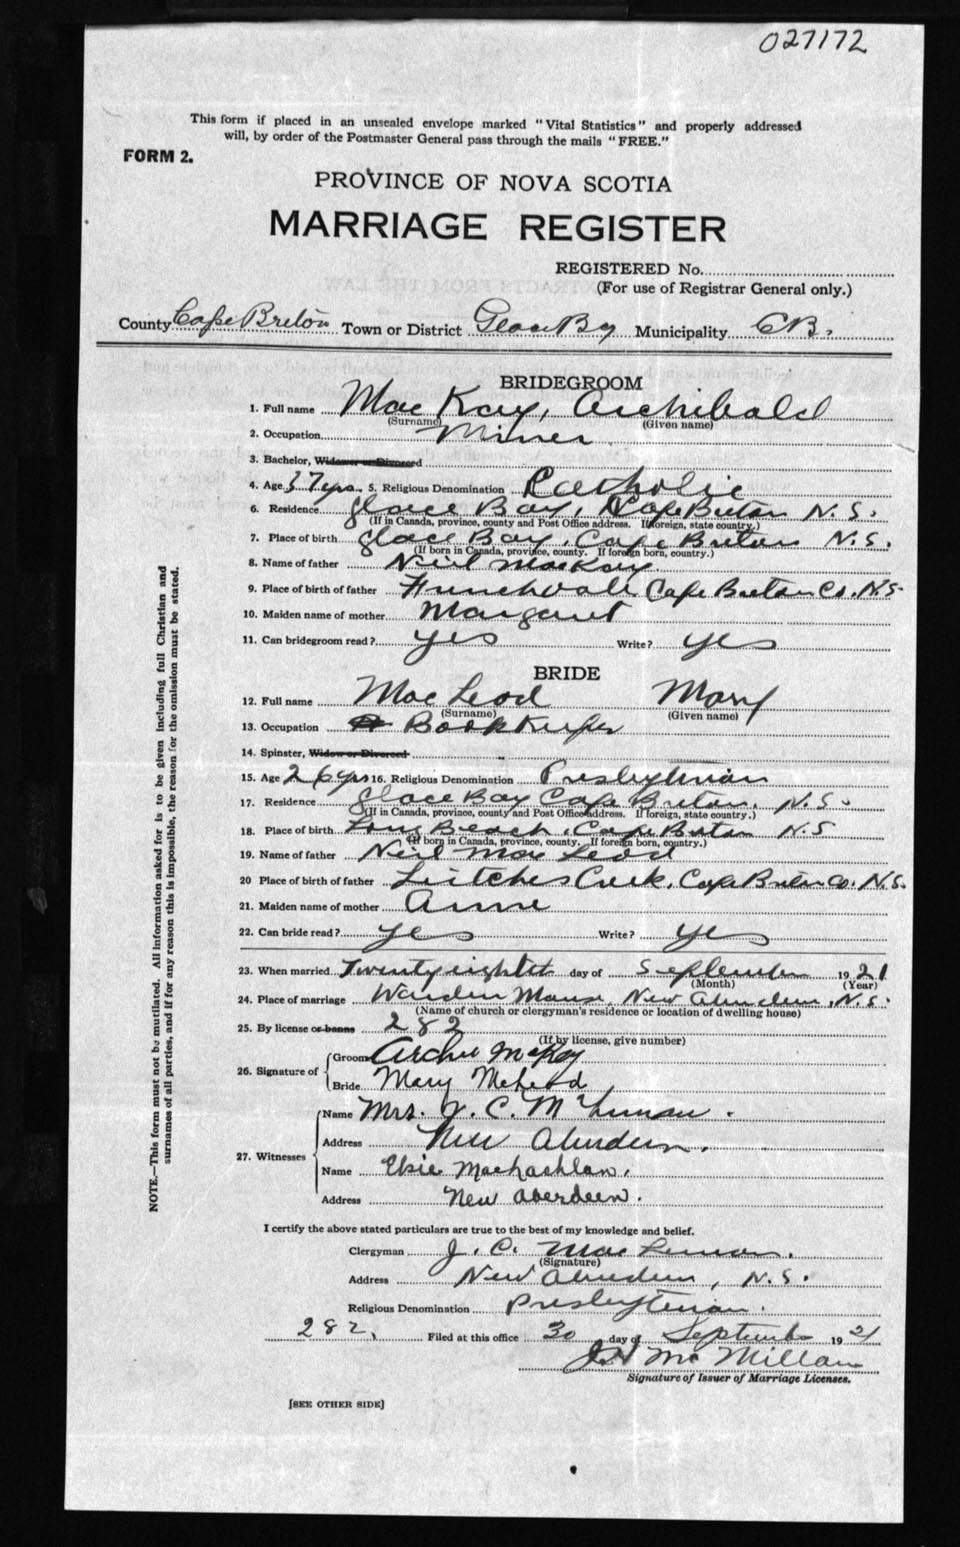 027172
This form if placed in an unsealed envelope marked "Vital Statistics" and properly addressed
will, by order of the Postmaster General pass through the mails "FREE."
FORM 2.
PROVINCE OF NOVA SCOTIA
MARRIAGE REGISTER
REGISTERED No.
(For use of Registrar General only.)
County Cape Breton Town or District Glace Bay Municipality C.B.
BRIDEGROOM
1. Full name MacKay, Archibald
(Surname) (Given name)
2. Occupation Miner
3. Bachelor, Widower or Divorced
4. Age 37 yrs. 5. Religious Denomination Catholic
6. Residence Glace Bay, Cape Breton N.S.
(If in Canada, province, county and Post Office address. If foreign, state country.)
7. Place of birth Glace Bay, Cape Breton N.S.
(If born in Canada, province, county. If foreign born, country.)
8. Name of father Neil MacKay
9. Place of birth of father Frenchvale Cape Breton Co. N.S.
10. Maiden name of mother Margaret
11. Can bridegroom read? yes Write? yes
BRIDE
12. Full name MacLeod Mary
(Surname) (Given name)
13. Occupation BookKeeper
14. Spinster, Widow or Divorced
15. Age 26 yrs 16. Religious Denomination Presbyterian
17. Residence Glace Bay Cape Breton, N.S.
(If in Canada, province, county and Post Office address. If foreign, state country.)
18. Place of birth Long Beach, Cape Breton N.S
(If born in Canada, province, county. If foreign born, country.)
19. Name of father Neil MacLeod
20 Place of birth of father Leitches Creek, Cape Breton Co. N.S.
21. Maiden name of mother Anne
22. Can bride read? yes Write? yes
23. When married Twenty eighth day of September 1921
(Month) (Year)
24. Place of marriage Warden Manse, New Aberdeen, N.S.
(Name of church or clergyman's residence or location of dwelling house)
25. By license or banns 282
(If by license, give number)
26. Signature of Groom Archie McKay
Bride Mary McLeod
27. Witnesses
Name Mrs. J. C. McLennan.
Address New Aberdeen.
Name Elsie MacLachlan.
Address New Aberdeen.
I certify the above stated particulars are true to the best of my knowledge and belief.
Clergyman J. C. MacLennan.
(Signature)
Address New Aberdeen, N.S.
Religious Denomination Presbyterian.
282, Filed at this office 30 day of September 1921
McMillan
Signature of Issuer of Marriage Licenses.
[SEE OTHER SIDE]
NOTE.—This form must not be mutilated. All information asked for is to be given including full Christian and
surnames of all parties, and if for any reason this is impossible, the reason for the omission must be stated.